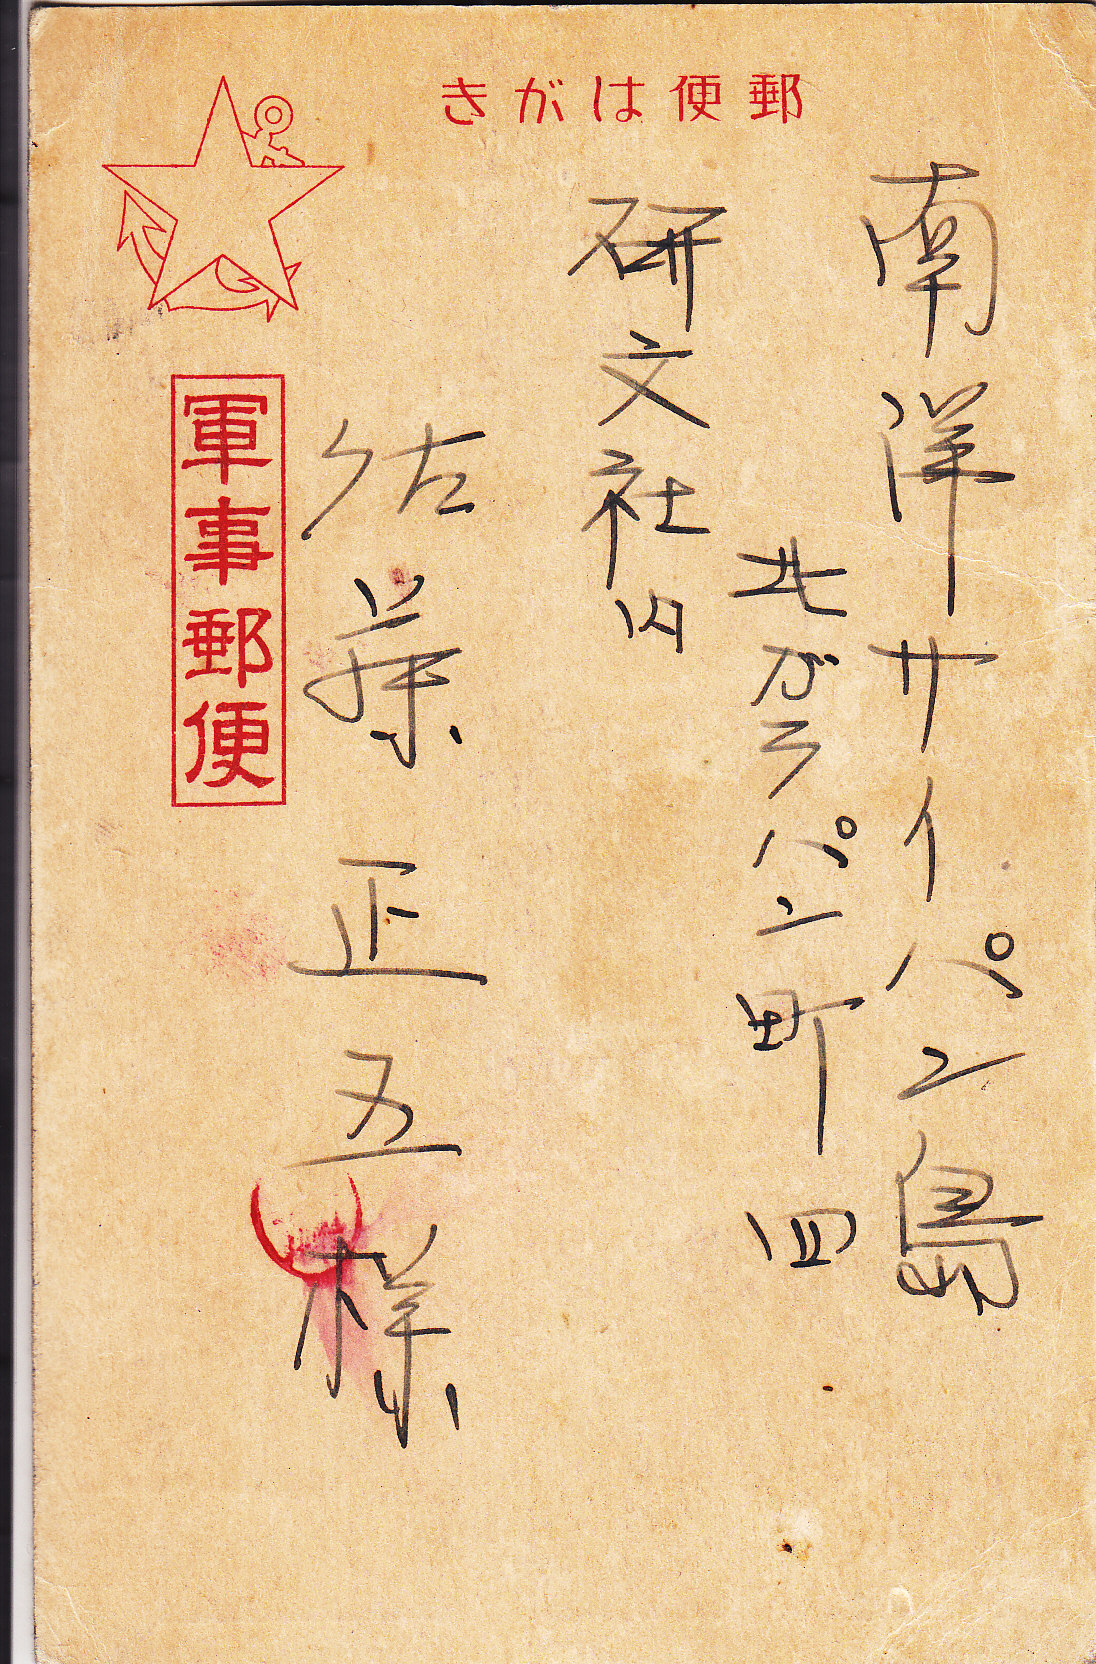 郵便はがき
軍事郵便
南洋サイパン島
北ガラパン町四
研文社内
佐藤正五様